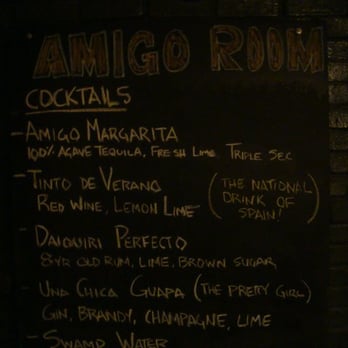 AMIGO ROOM
COCKTAILS
- AMIGO MARGARITA
100% AGAVE TEQUILA, FRESH LIME, TRIPLE SEC
- TINTO DE VERANO (THE NATIONAL
RED WINE, LEMON LIME DRINK OF
SPAIN!)
- DAIQUIRI PERFECTO
8 YR OLD RUM, LIME, BROWN SUGAR
- UNA CHICA GUAPA (THE PRETTY GIRL)
GIN, BRANDY, CHAMPAGNE, LIME
- SWAMP WATER